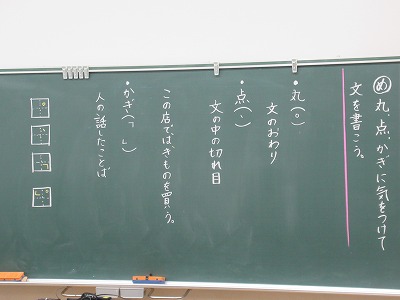 め 丸、点、かぎに気をつけて
文を書こう。
・丸(。)
文のおわり
・点(、)
文の中の切れ目
この店ではきものを買う。
・かぎ(「 」)
人の話したことば